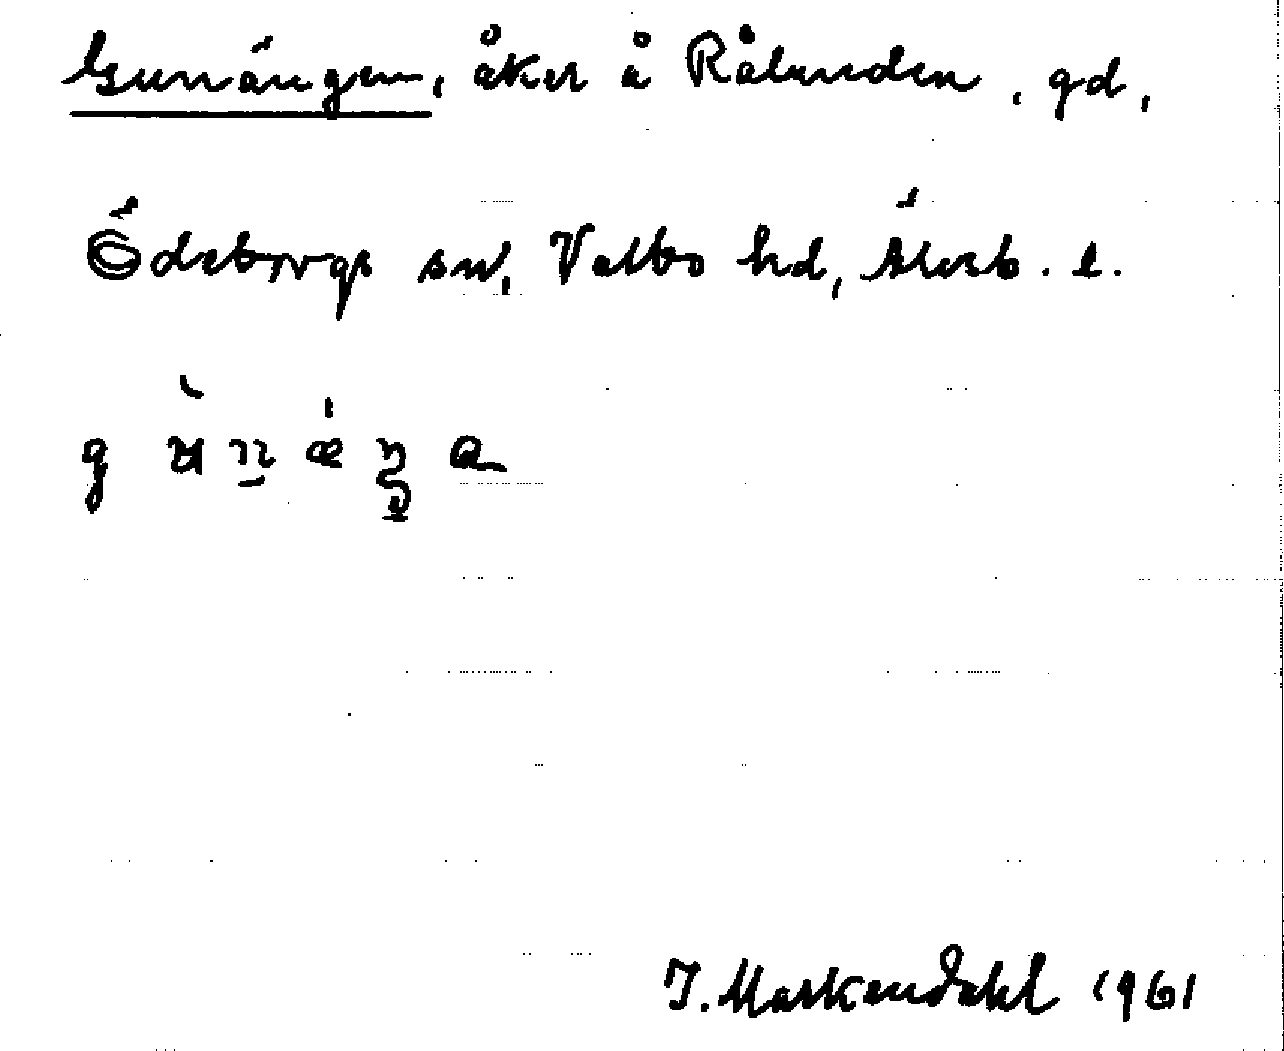 Gunnängen, åker å Rålunden, gd,
Ödeborgs sn, Valbo hd, Älvsb. l.
J. Markendahl 1961